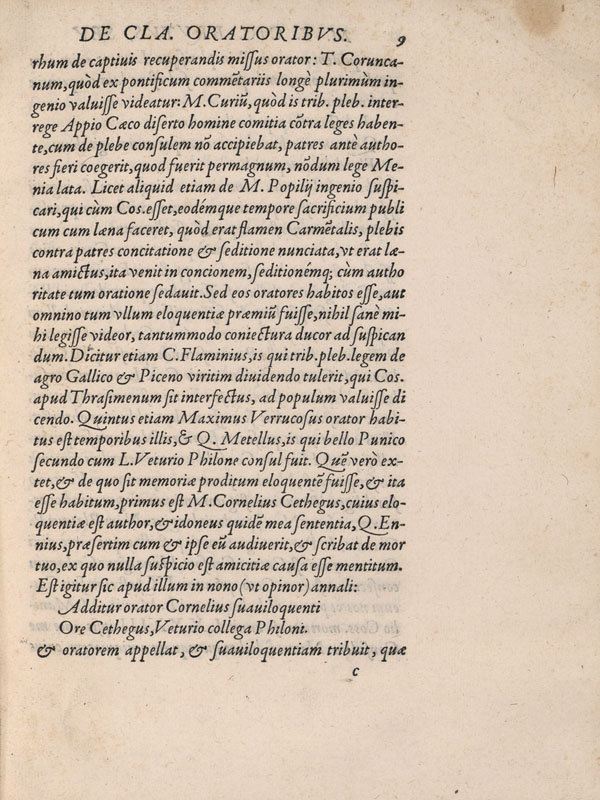 DE CLA. ORATORIBVS. 9
rhum de captiuis recuperandis miſſus orator: T. Corunca-
num, quòd ex pontificum commẽtariis longè plurimùm in-
genio valuiſſe videatur: M. Curiũ, quòd is trib. pleb. inter-
rege Appio Cæco diſerto homine comitia cõtra leges haben-
te, cum de plebe conſulem nõ accipiebat, patres antè autho-
res fieri coegerit, quod fuerit permagnum, nõdum lege Me-
nia lata. Licet aliquid etiam de M. Popilij ingenio ſuſpi-
cari, qui cùm Coſ. eſſet, eodémque tempore ſacrificium publi
cum cum læna faceret, quòd erat flamen Carmẽtalis, plebis
contra patres concitatione & ſeditione nunciata, vt erat læ-
na amictus, ita venit in concionem, ſeditionémq; cùm autho
ritate tum oratione ſedauit. Sed eos oratores habitos eſſe, aut
omnino tum vllum eloquentiæ præmiũ fuiſſe, nihil ſanè mi-
hi legiſſe videor, tantummodo coniectura ducor ad ſuſpican
dum. Dicitur etiam C. Flaminius, is qui trib. pleb. legem de
agro Gallico & Piceno viritim diuidendo tulerit, qui Coſ.
apud Thraſimenum ſit interfectus, ad populum valuiſſe di
cendo. Quintus etiam Maximus Verrucoſus orator habi-
tus eſt temporibus illis, & Q. Metellus, is qui bello Punico
ſecundo cum L. Veturio Philone conſul fuit. Quẽ verò ex-
tet, & de quo ſit memoriæ proditum eloquentẽ fuiſſe, & ita
eſſe habitum, primus eſt M. Cornelius Cethegus, cuius elo-
quentiæ eſt author, & idoneus quidẽ mea ſententia, Q. En-
nius, præſertim cum & ipſe eũ audiuerit, & ſcribat de mor
tuo, ex quo nulla ſuſpicio eſt amicitiæ cauſa eſſe mentitum.
Eſt igitur ſic apud illum in nono (vt opinor) annali:
Additur orator Cornelius ſuauiloquenti
Ore Cethegus, Veturio collega Philoni.
& oratorem appellat, & ſuauiloquentiam tribuit, quæ
c